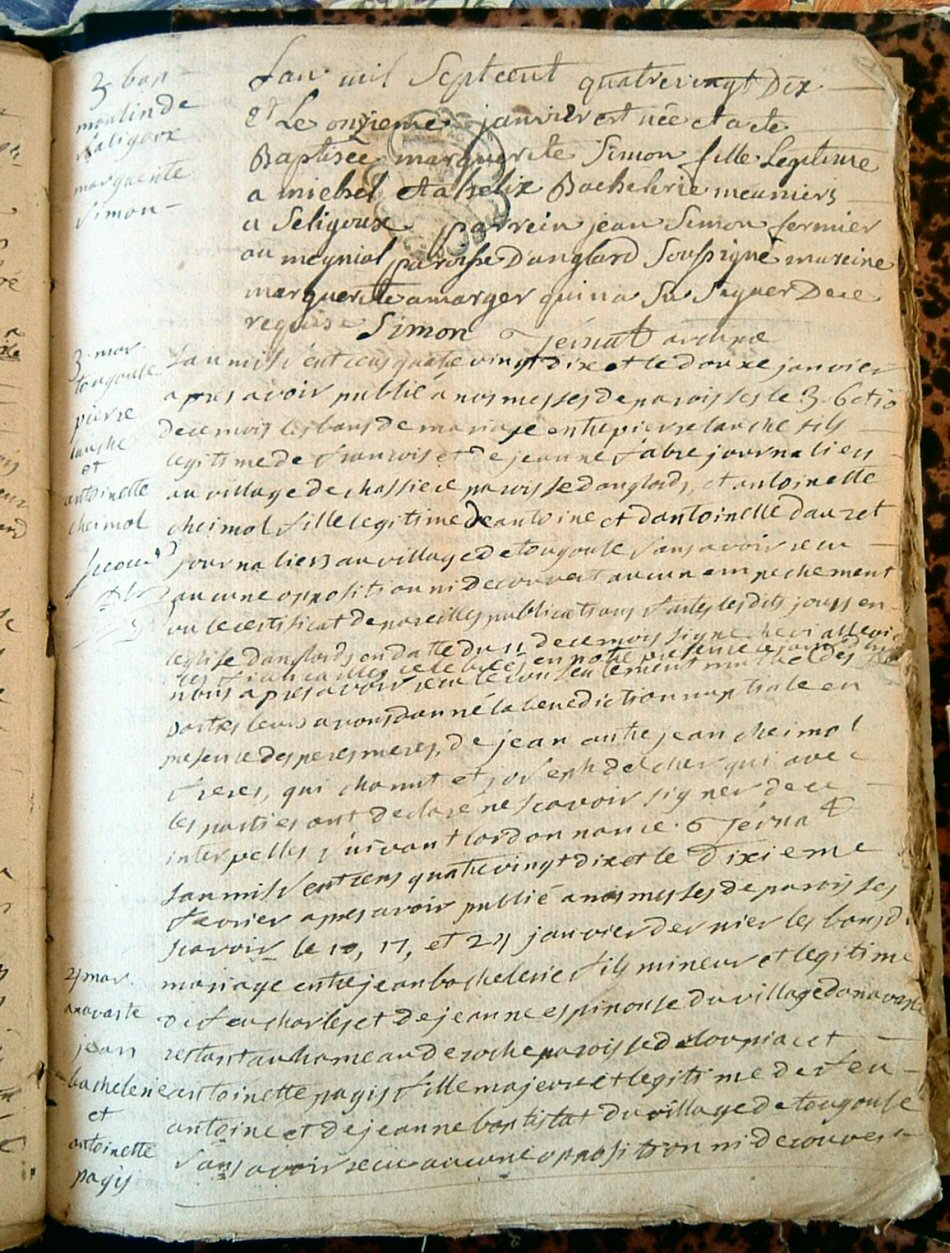 3 bap
moulin de
Saligoux
marguerite
Simon
Lan mil Septcent quatrevingt Dix
et Le onzieme janvier est née et a ete
Baptisée marguerite Simon fille Legitime
a michel et a helix Bachelerie meuniers
a Seligoux parrein jean Simon fermier
au meynial paroisse Danglard Soussigné mareine
marguerite amarger qui na Su Signer De ce
requise Simon Jernat
3 mar.
tougouse
pierre
lauche
et
antoinette
cheimol
lan mil sept cens quatre vingt dix et le douxe janvier
apres avoir publié a nos messes de paroisses le 3. 6 et 10
de ce mois les bans de mariage entre pierre lauche fils
legitime de francois et de jeanne fabre journaliers
au village de chassiece paroisse danglards, et antoinette
cheimol fille legitime de antoine et dantoinette dauzet
journaliers au village de tougouse sans avoir recu
aucune opposition ni decouvert aucun empechement
vu le certificat de pareilles publications faites les dits jours en
leglise danglards en date du 11 de ce mois signé
les fiancailles celebrées en notre presence
nous apres avoir recu le consentement mutuel des
parties leurs avons donné la benediction nuptiale en
presence des peres meres, de jean autre jean cheimol
freres, qui chanut et joseph delcher qui avec
les parties ont declaré ne scavoir signer de ce
interpelles suivant lordonnance. Jernat
4 mar.
anavaste
jean
bachelerie
et
antoinette
pagis
lan mil sept cens quatre vingt dix et le Dixieme
fevrier apres avoir publié a nos messes de paroisses
scavoir le 10, 17, et 24 janvier dernier les bans de
mariage entre jean bachelerie fils mineur et legitime
de feu charles et de jeanne espinouse du village danavaste
restant au hameau de roche paroisse de loupiac et
antoinette pagis fille majeure et legitime de feu
antoine et de jeanne bontistat du village de tougouse
sans avoir recu aucune opposition ni decouvert